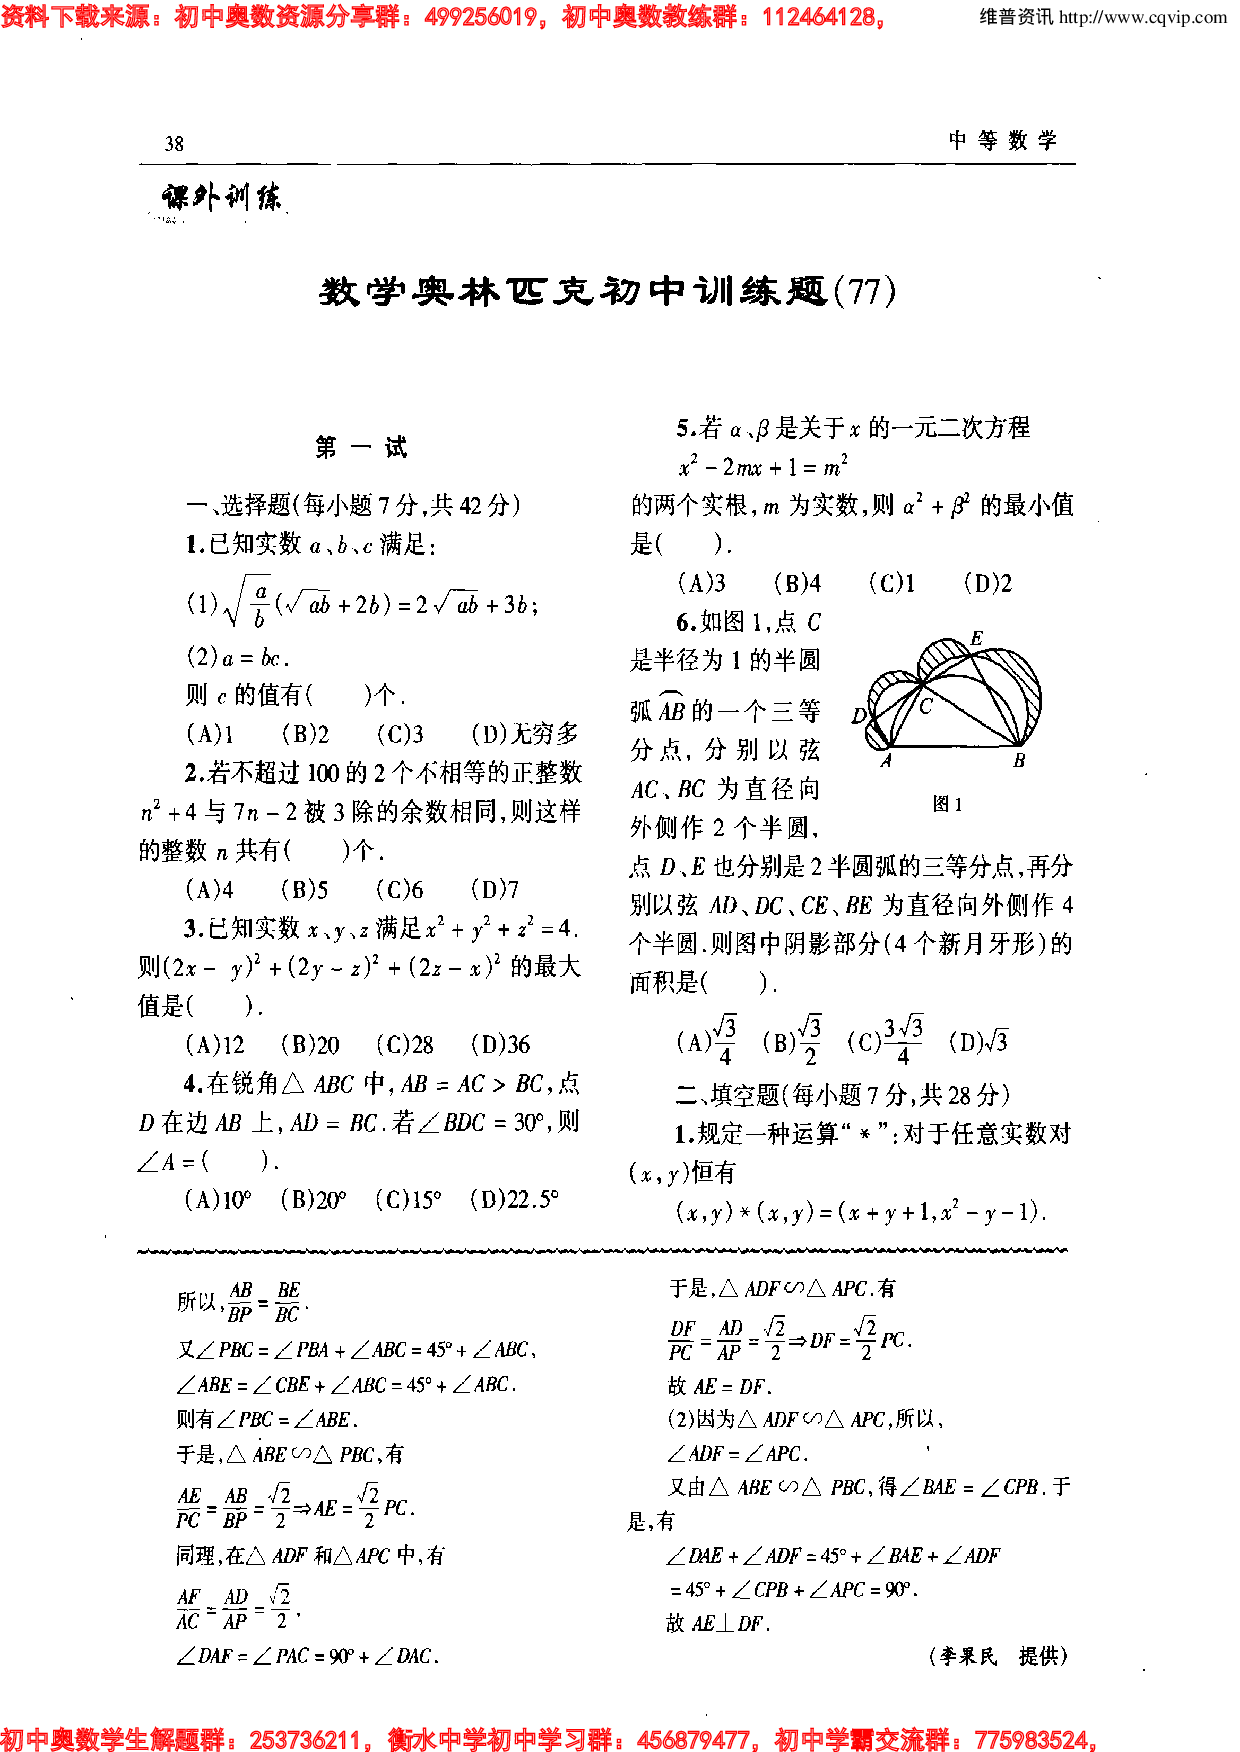 资料下载来源：初中奥数资源分享群：499256019，初中奥数教练群：112464128，
维普资讯 http://www.cqvip.com
38
中等数学
课外训练
数学奥林匹克初中训练题(77)
第一试
一、选择题(每小题7分,共42分)
1.已知实数 a、b、c 满足:
(1)√(a/b)(√ab + 2b) = 2√ab + 3b;
(2)a = bc.
则 c 的值有(　　)个.
(A)1　(B)2　(C)3　(D)无穷多
2.若不超过100的2个不相等的正整数
n² + 4 与 7n - 2 被 3 除的余数相同,则这样
的整数 n 共有(　　)个.
(A)4　(B)5　(C)6　(D)7
3.已知实数 x、y、z 满足 x² + y² + z² = 4.
则(2x - y)² + (2y - z)² + (2z - x)² 的最大
值是(　　).
(A)12　(B)20　(C)28　(D)36
4.在锐角△ABC 中, AB = AC > BC,点
D 在边 AB 上, AD = BC.若∠BDC = 30°,则
∠A = (　　).
(A)10°　(B)20°　(C)15°　(D)22.5°
5.若 α、β 是关于 x 的一元二次方程
x² - 2mx + 1 = m²
的两个实根, m 为实数,则 α² + β² 的最小值
是(　　).
(A)3　(B)4　(C)1　(D)2
6.如图1,点 C
是半径为1的半圆
弧 AB 的一个三等
分点,分别以弦
AC、BC 为直径向
外侧作2个半圆,
E
D
C
A
B
图1
点 D、E 也分别是2半圆弧的三等分点,再分
别以弦 AD、DC、CE、BE 为直径向外侧作4
个半圆.则图中阴影部分(4个新月牙形)的
面积是(　　).
(A)√3/4　(B)√3/2　(C)3√3/4　(D)√3
二、填空题(每小题7分,共28分)
1.规定一种运算“*”:对于任意实数对
(x, y)恒有
(x,y)*(x,y) = (x + y + 1, x² - y - 1).
所以, AB/BP = BE/BC.
又∠PBC = ∠PBA + ∠ABC = 45° + ∠ABC,
∠ABE = ∠CBE + ∠ABC = 45° + ∠ABC.
则有∠PBC = ∠ABE.
于是,△ABE∽△PBC,有
AE/PC = AB/BP = √2/2 ⇒ AE = √2/2 PC.
同理,在△ADF和△APC中,有
AF/AC = AD/AP = √2/2,
∠DAF = ∠PAC = 90° + ∠DAC.
于是,△ADF∽△APC.有
DF/PC = AD/AP = √2/2 ⇒ DF = √2/2 PC.
故 AE = DF.
(2)因为△ADF∽△APC,所以,
∠ADF = ∠APC.
又由△ABE∽△PBC,得∠BAE = ∠CPB.于
是,有
∠DAE + ∠ADF = 45° + ∠BAE + ∠ADF
= 45° + ∠CPB + ∠APC = 90°.
故 AE⊥DF.
(李果民　提供)
初中奥数学生解题群：253736211，衡水中学初中学习群：456879477，初中学霸交流群：775983524，